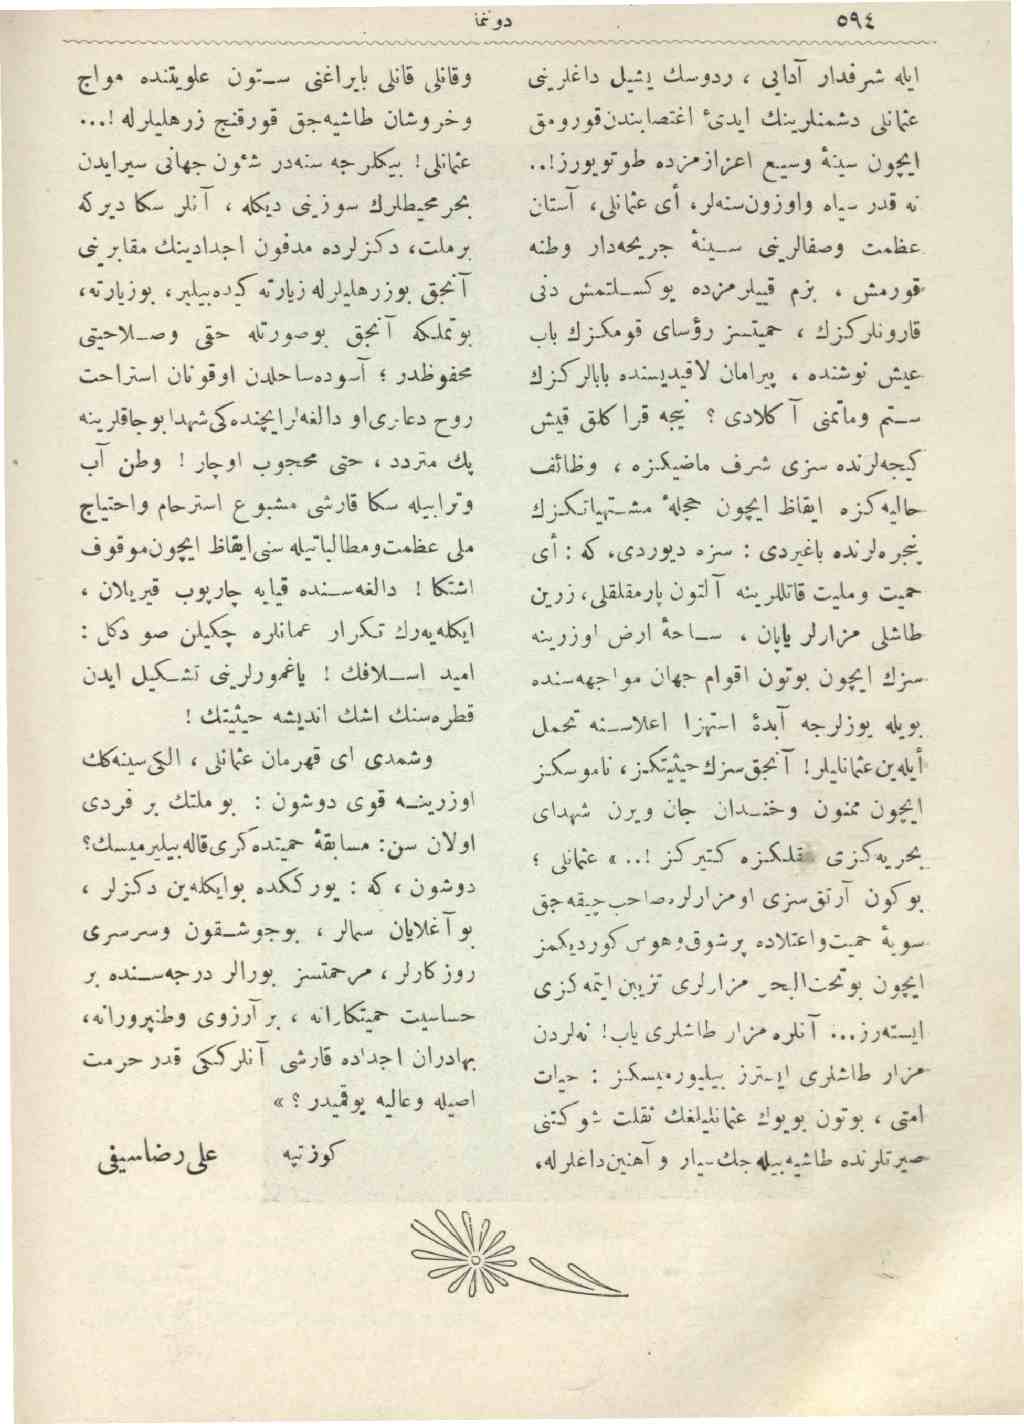 ٥٩٤
دوننما
ايله شرفدار آدابى ، ردوسك يشيل داغلرينى
عثمانلى دشمنلرينك ايدئ اغتصابندن قورومق
ايچون سينهٔ وسيع اعزازمزده طوتويورز!..
نه قدر سياه واوزون سنه‌لر، أى عثمانلى، آستان
عظمت وصفالرينى سينهٔ جريحه‌دار وطنه
قورمش ، بزم قبيلرمزده يوكسلتمش دنى
قارونلركزك ، حميتسز رؤساى قومكزك باب
عيش نوشنده ، پيرامان لاقيديسنده بابالركزك
ستم وماتمنى آكلادى ؟ نيجه قراكلق قيش
كيجه‌لرنده سزى شرف ماضيكزه ، وظائف
حاليه‌كزه ايقاظ ايچون حجلهٔ مشتهياتكزك
پنجره‌لرنده باغيردى : سزه ديوردى، كه : أى
حميت ومليت قاتللرينه آلتون پارمقلقلى، زرين
طاشلى مزارلر ياپان ، ساحهٔ ارض اوزرينه
سزك ايچون بوتون اقوام جهان مواجهه‌سنده
بويله يوزلرجه آبدهٔ استهزا اعلاسنه تحمل
أيله‌ين عثمانليلر! آنجق سزك حيثيتكز، ناموسكز
ايچون ممنون وخندان جان ويرن شهداى
بحريه‌كزى كتيركز !.. » عثمانلى ؛
بوكون آرتق سزى اومزارلره صاحب چيقه‌جق
سويهٔ حميت واعتلاده پرشوق وهوس كورديكمز
ايچون بوتحت‌البحر مزارلرى تزيين ايتمه‌كزى
ايسته‌رز... آنلره مزار طاشلرى ياپ! نه‌لردن
مزار طاشلرى ايسترز بيليورميسكز : حيات
امتى ، بوتون بويوك عثمانليلغك ثقلت شوكتنى
صيرتلرنده طاشيه‌بيله‌جك سيار و آهنين داغلرله،
وقانلى قانلى بايراغنى ستون علويتنده مواج
وخروشان طاشيه‌جق قورقنج زرهليلرله !...
عثمانلى ! بيكلرجه سنه‌در شئون جهانى سيرايدن
بحرمحيطلرك سوزينى ديكله ، آنلر سكا ديركه
برملت، دكزلرده مدفون اجدادينك مقابرينى
آنجق بوزرهليلرله زيارته كيده‌بيلير، بوزيارته،
بوتملكه آنجق بوصورتله حقى وصلاحيتى
محفوظدر ؛ آسوده‌ساحلدن اوقونان استراحت
روح دعالرى‌او دالغه‌لرايچنده‌كى‌شهدا بوجاقلرينه
پك متردد ، حتى محجوب اوچار ! وطن آب
وترابيله سكا قارشى مشبوع استرحام واحتياج
ملى عظمت‌ومطالباتيله سنى‌ايقاظ ايچون‌موقوف
اشتكا ! دالغه‌سنده قيايه چارپوب قيريلان ،
ايكله‌يه‌رك تكرار عمانلره چكيلن صو دكل :
اميد اسلافك ! ياغمورلرينى تشكيل ايدن
قطره‌سنك اشك انديشه حيثيتك !
وشمدى اى قهرمان عثمانلى ، الكى‌سينه‌كك
اوزرينه قوى دوشون : بو ملتك بر فردى
اولان سن: مسابقهٔ حميتده‌كرى‌قاله‌بيليرميسك؟
دوشون ، كه : يوركڭده بوايكله‌ين دكزلر ،
بو آغلايان سمالر ، بوجوشقون وسرسرى
روزكارلر ، مرحمتسز بورالر درجه‌سنده بر
حساسيت حميتكارانه ، بر آرزوى وطنپرورانه،
بهادران اجداده قارشى آنلركڭى قدر حرمت
اصيله وعاليه يوقميدر ؟ »
كوزتپه علی رضا سيفی